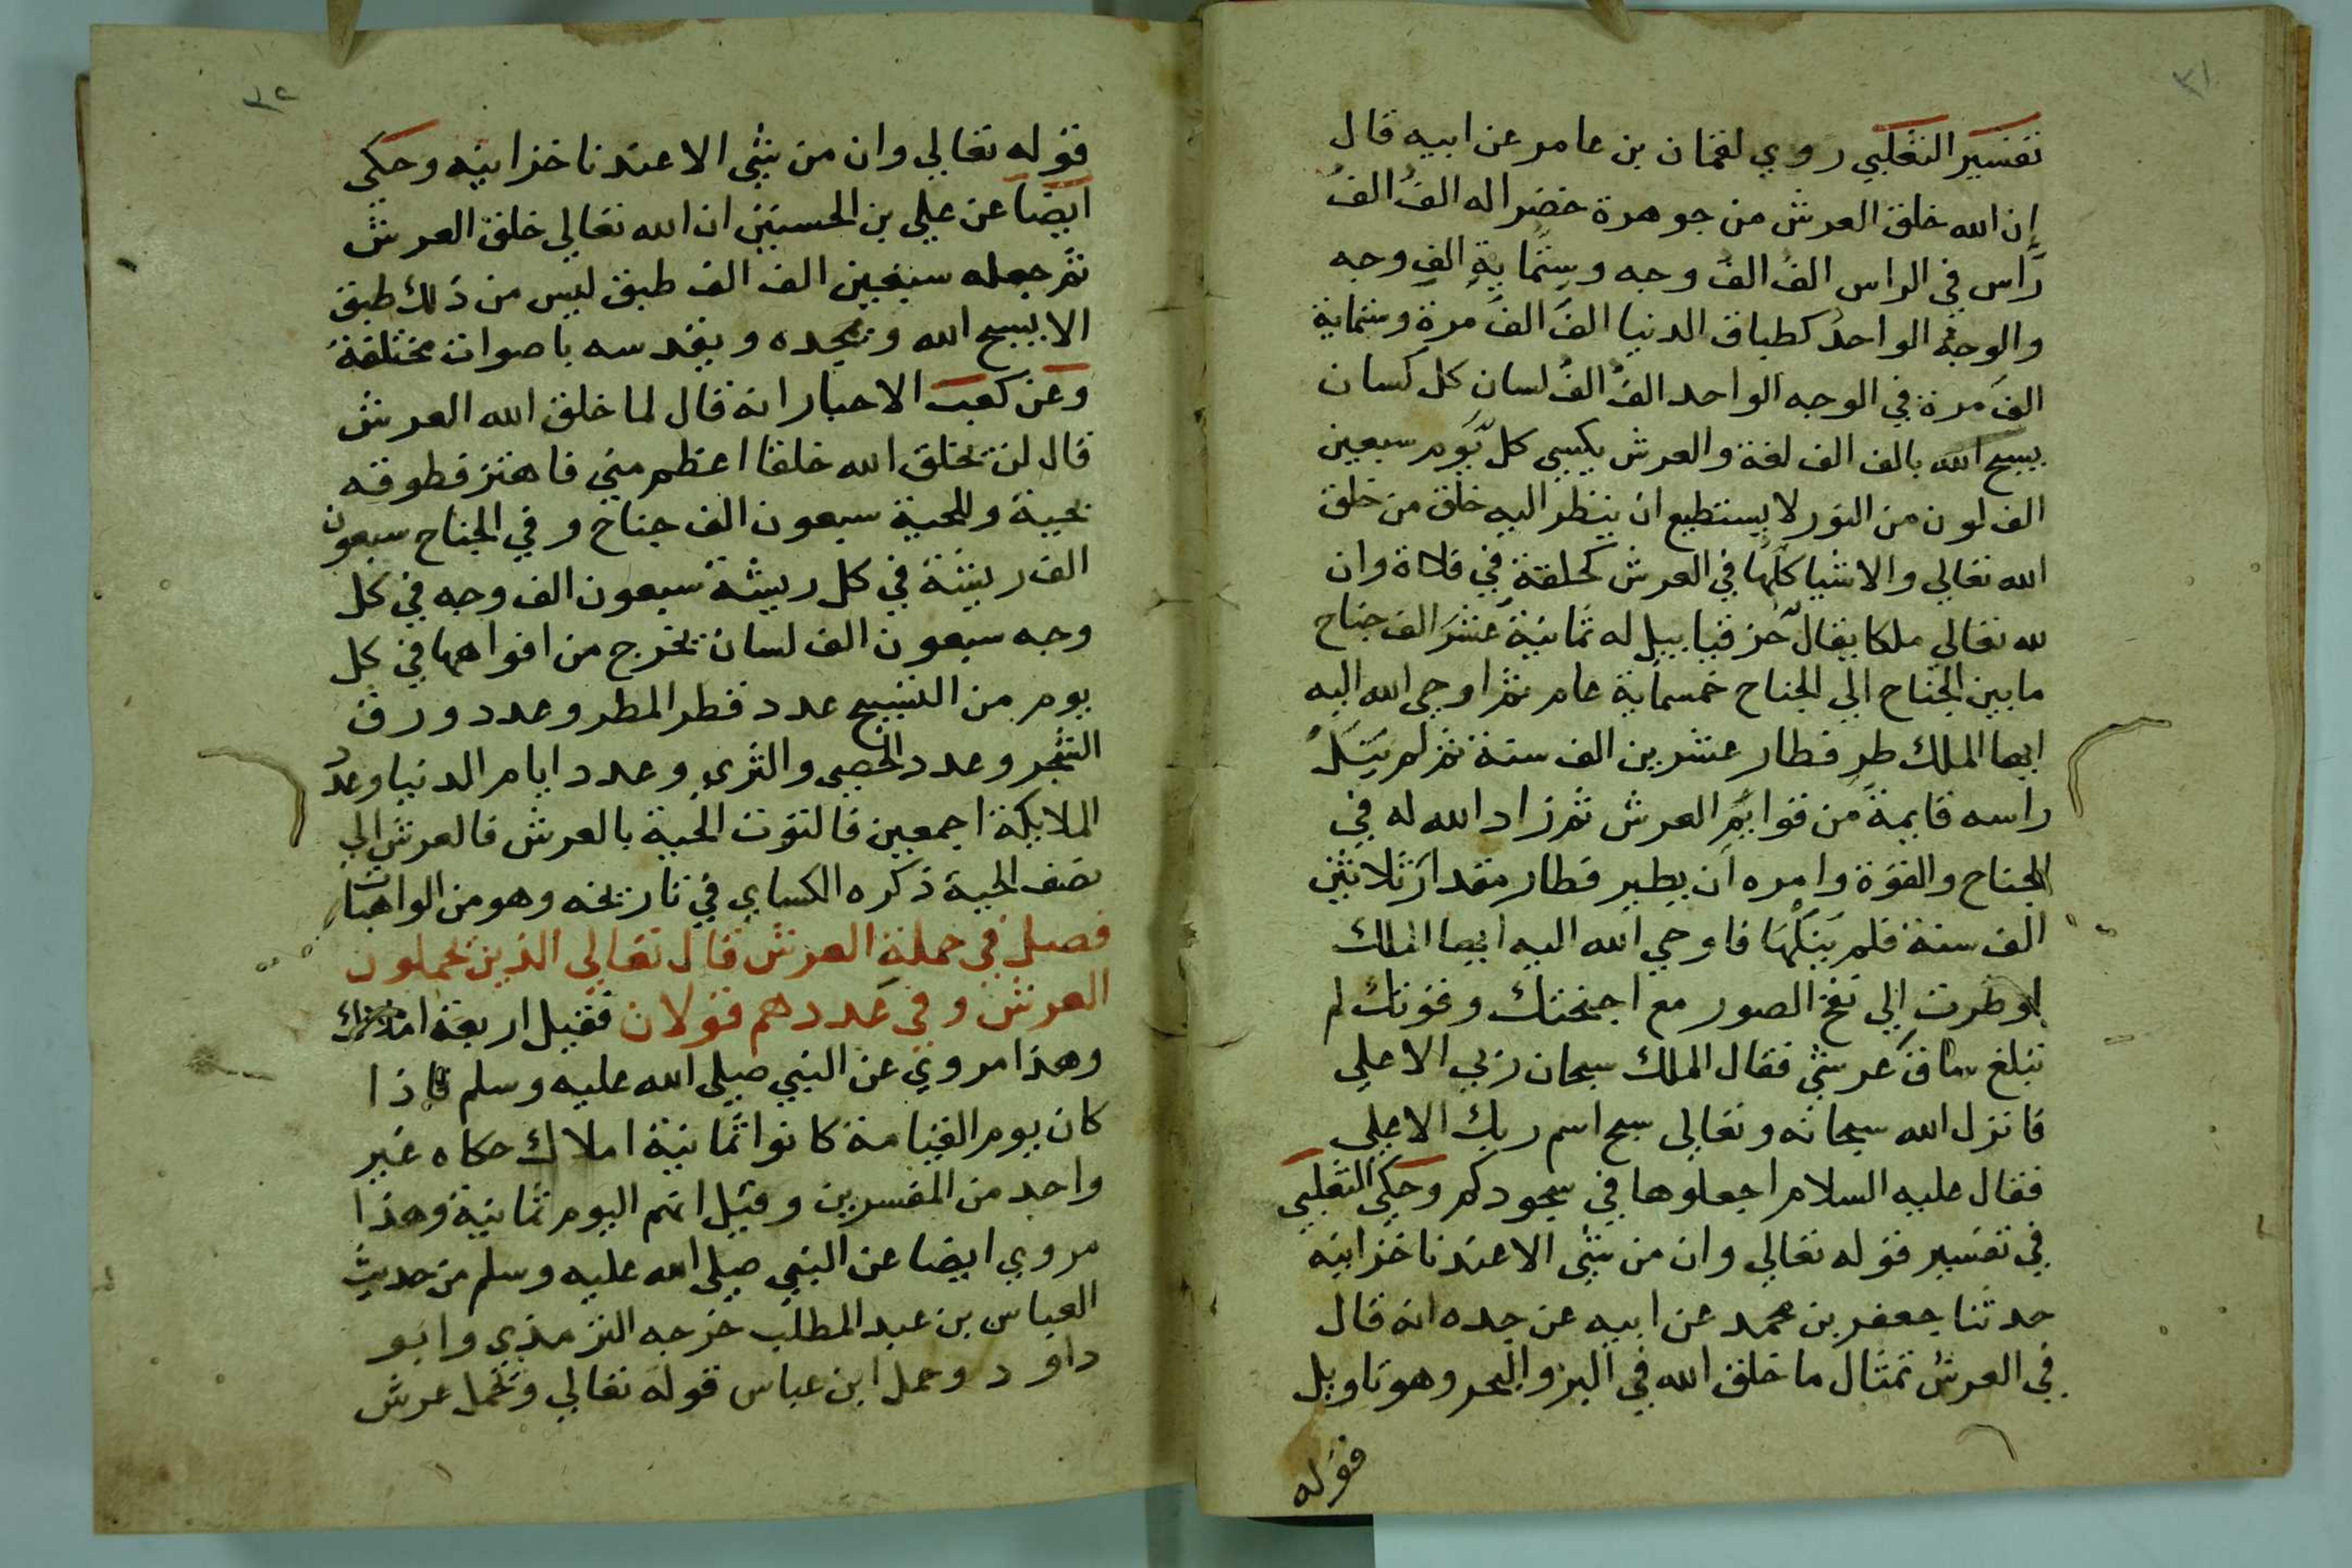 ٣١
تفسير الثعلبي روي لقمان بن عامر عن ابيه قال
إن الله خلق العرش من جوهرة خضرا له الفُ الفُ
رَاس في الراس الفُ الفُ وجه وستماية الفِ وجه
والوجه الواحدُ كطباق الدنيا الفَ الفَ مرة وستماية
الفَ مرة في الوجه الواحد الفُ الفُ لسان كل كسان
يسبح الله بالف الف لغة والعرش يكسي كل يوم سبعين
الف لون من النور لا يستطيع ان ينظر اليه خلق من خلق
الله تعالي والاشيا كلُها في العرش كحلقة في فلاة وان
لله تعالي ملكا يقال حزقيابيل له ثمانية عشر الف جناح
مابين الجناح الي الجناح خمسماية عام ثم اوحي الله اليه
ايها الملك طر فطار عشرين الف سنة ثم لم يَنَلْ
راسه قايمة من قوايم العرش ثم زاد الله له في
الجناح والقوة وامره ان يطير فطار مقدار ثلاثين
الف سنة فلم يَنَلْهَا فاوحي الله اليه ايها الملك
لو طرت الي نفخ الصور مع اجنحتك وقوتك لم
تبلغ ساق عرشي فقال الملك سبحان ربي الاعلي
فانزل الله سبحانه وتعالي سبح اسم ربك الاعلي
فقال عليه السلام اجعلوها في سجودكم وحكي الثعلبي
في تفسير قوله تعالي وان من شي الا عندنا خزاينه
حدثنا جعفر بن محمد عن ابيه عن جده انه قال
في العرش تمثال ما خلق الله في البر والبحر وهو تاويل
قوله
٣٢
قوله تعالي وان من شي الا عندنا خزاينه وحكي
ايضا عن علي بن الحسين ان الله تعالي خلق العرش
ثم جعله سبعين الف الف طبق ليس من ذلك طبق
الا يسبح الله ويمجده ويقدسه باصوات مختلفة
وعن كعب الاحبار انه قال لما خلق الله العرش
قال لن يخلق الله خلقا اعظم مني فاهتز فطوقه
بحية وللحية سبعون الف جناح وفي الجناح سبعون
الف ريشة في كل ريشة سبعون الف وجه في كل
وجه سبعون الف لسان يخرج من افواهها في كل
يوم من التسبيح عدد قطر المطر وعدد ورق
الشجر وعدد الحصي والثري وعدد ايام الدنيا وعدد
الملايكة اجمعين فالتوت الحية بالعرش فالعرش الي
نصف الحية ذكره الكساي في تاريخه وهو من الواهيات
فصل في حملة العرش قال تعالي الذين يحملون
العرش وفي عددهم قولان فقيل اربعة املاك
وهذا مروي عن النبي صلي الله عليه وسلم فاذا
كان يوم القيامة كانوا ثمانية املاك حكاه غير
واحد من المفسرين وقيل انهم اليوم ثمانية وهذا
مروي ايضا عن النبي صلي الله عليه وسلم من حديث
العباس بن عبد المطلب خرجه الترمذي وابو
داود وحمل ابن عباس قوله تعالي ويحمل عرش